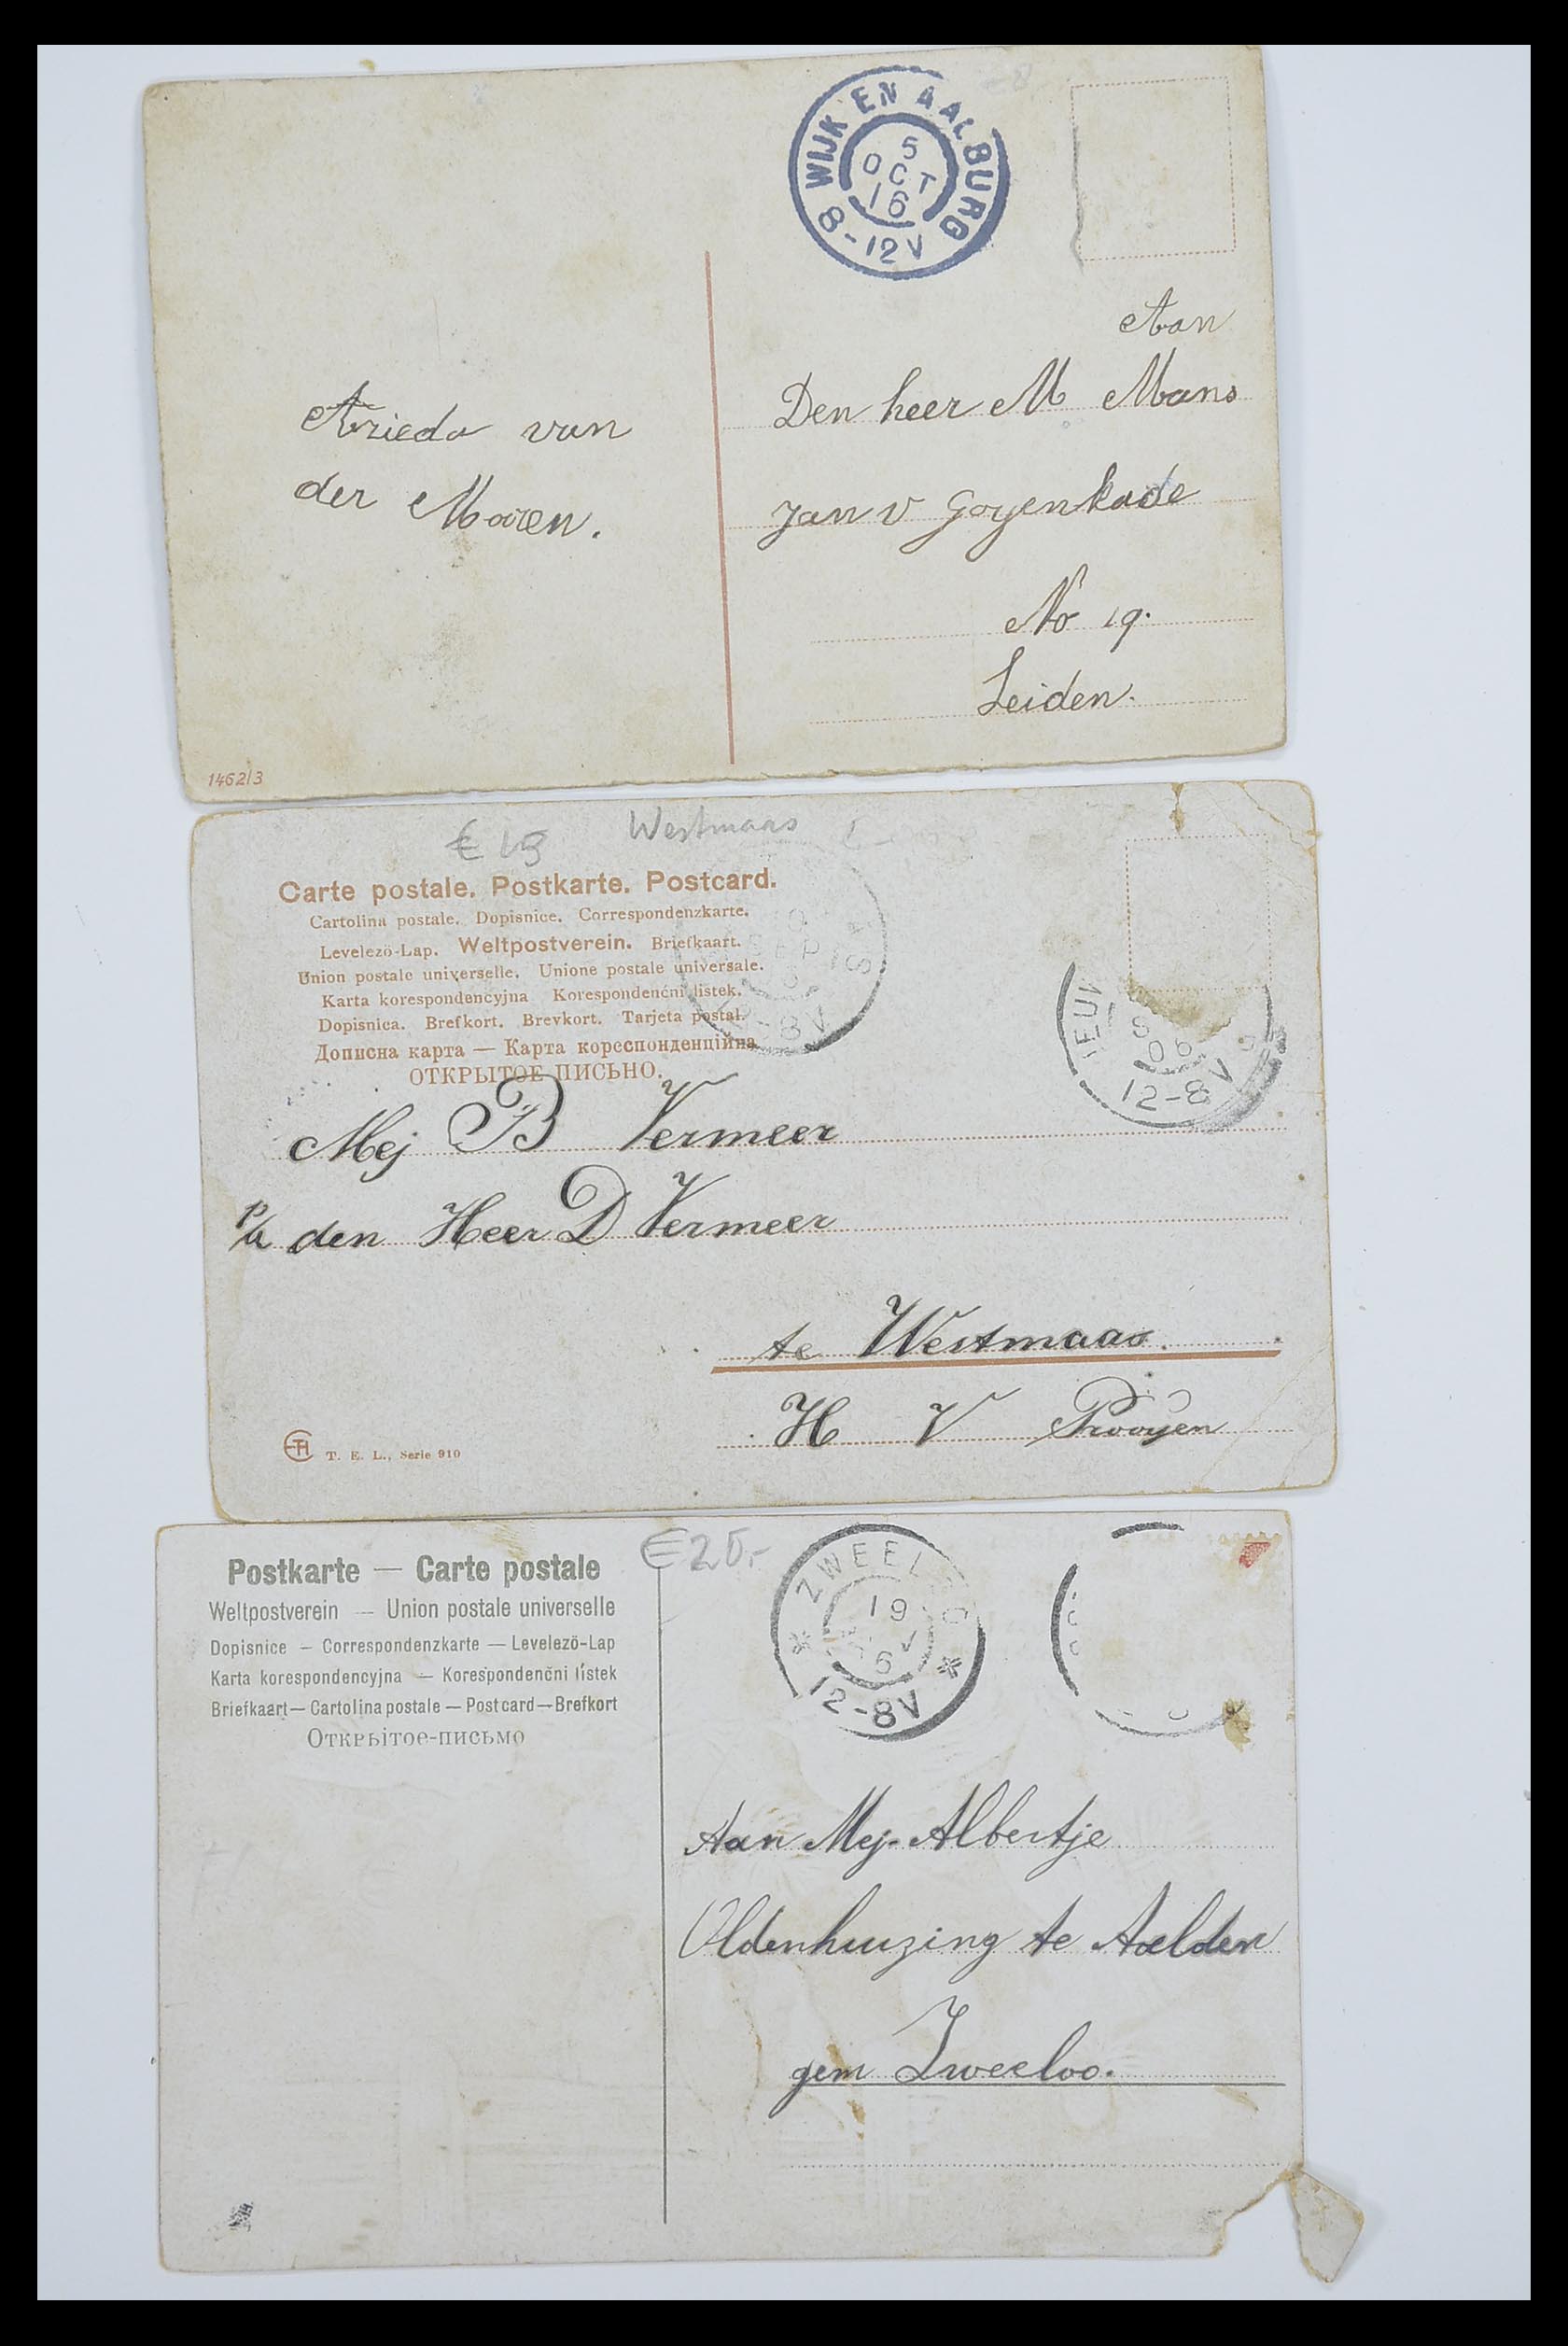 WIJK EN AALBURG
5
OCT
16
8-12V
Aan
Den heer M Mans
Jan v Goyenkade
No 19.
Leiden.
van
der Mooren.
1462/3
€ 15 Westmaas
Carte postale. Postkarte. Postcard.
Cartolina postale. Dopisnice. Correspondenzkarte.
Levelezö-Lap. Weltpostverein. Briefkaart.
Union postale universelle. Unione postale universale.
Karta korespondencyjna Korespondenční lístek.
Dopisnica. Brefkort. Brevkort. Tarjeta postal.
Дописна карта — Карта кореспонденційна
ОТКРЫТОЕ ПИСЬНО.
-8V
06
12-8V
Mej B Vermeer
p/a den Heer D Vermeer
te Westmaas.
H V Prooyen
T. E. L., Serie 910
Postkarte — Carte postale
Weltpostverein — Union postale universelle
Dopisnice — Correspondenzkarte — Levelezö-Lap
Karta korespondencyjna — Korespondenčni lístek
Briefkaart — Cartolina postale — Post card — Brefkort
Открьітое-письмо
€ 20.-
ZWEELOO
19
6
12-8V
Aan Mej. Albertje
Oldenhuizing te Aelden
gem Zweeloo.